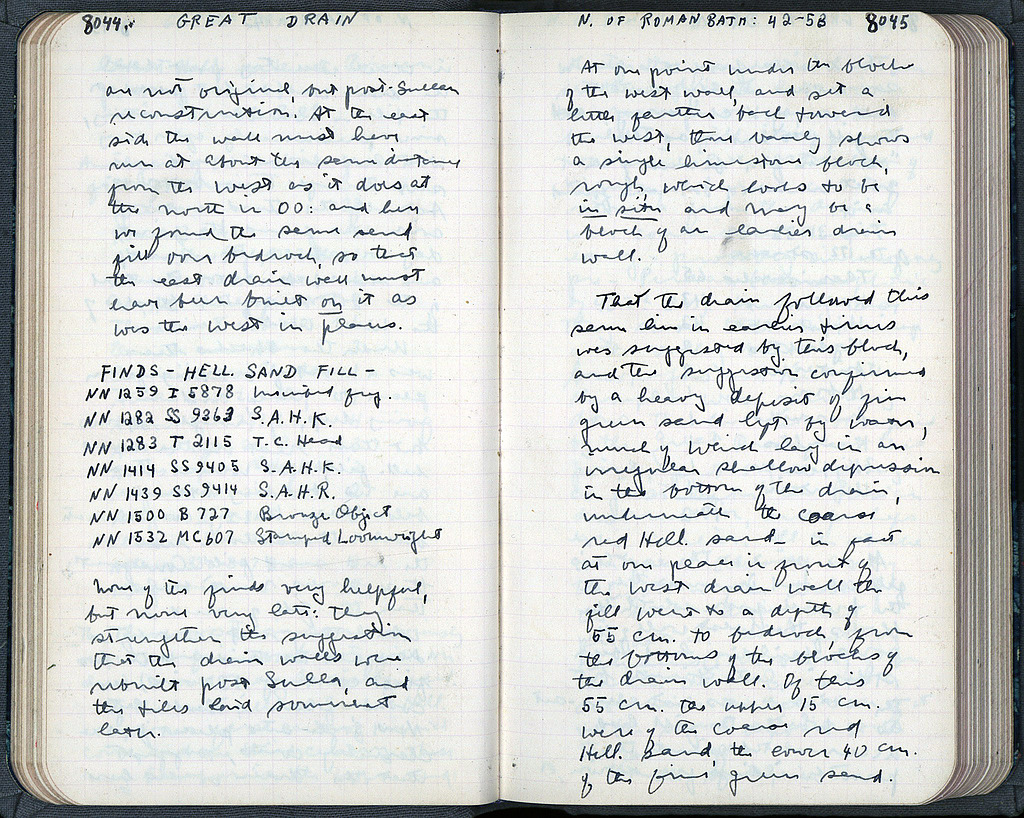 8044.. GREAT DRAIN
are not original, but post-Sullan
reconstruction. At the east
side the wall must have
run at about the same distance
from the west as it does at
the north in OO: and here
we found the same sand
fill over bedrock, so that
the east drain wall must
have been built on it as
was the west in places.
FINDS - HELL. SAND FILL -
NN 1259 I 5878 Inscribed frg.
NN 1282 SS 9363 S.A.H.K.
NN 1283 T 2115 T.C. Head
NN 1414 SS 9405 S.A.H.K.
NN 1439 SS 9414 S.A.H.R.
NN 1500 B 727 Bronze Object
NN 1532 MC 607 Stamped Loomweight
None of the finds very helpful,
but none very late: they
strengthen the suggestion
that the drain walls were
rebuilt post Sulla, and
the tiles laid somewhat
later.
N. OF ROMAN BATH: 42-53 8045
At one point under the blocks
of the west wall, and set a
little farther back toward
the west, there barely shows
a single limestone block,
rough, which looks to be
in situ and may be a
block of an earlier drain
wall.
That the drain followed this
same line in earlier times
was suggested by this block,
and the suggestion confirmed
by a heavy deposit of fine
green sand left by water,
much of which lay in an
irregular shallow depression
in the bottom of the drain,
underneath the coarse
red Hell. sand - in fact
at one place in front of
the west drain wall the
fill went to a depth of
55 cm. to bedrock, from
the bottoms of the blocks of
the drain wall. Of this
55 cm. the upper 15 cm.
were of the coarse red
Hell. sand, the lower 40 cm.
of the fine, green sand.